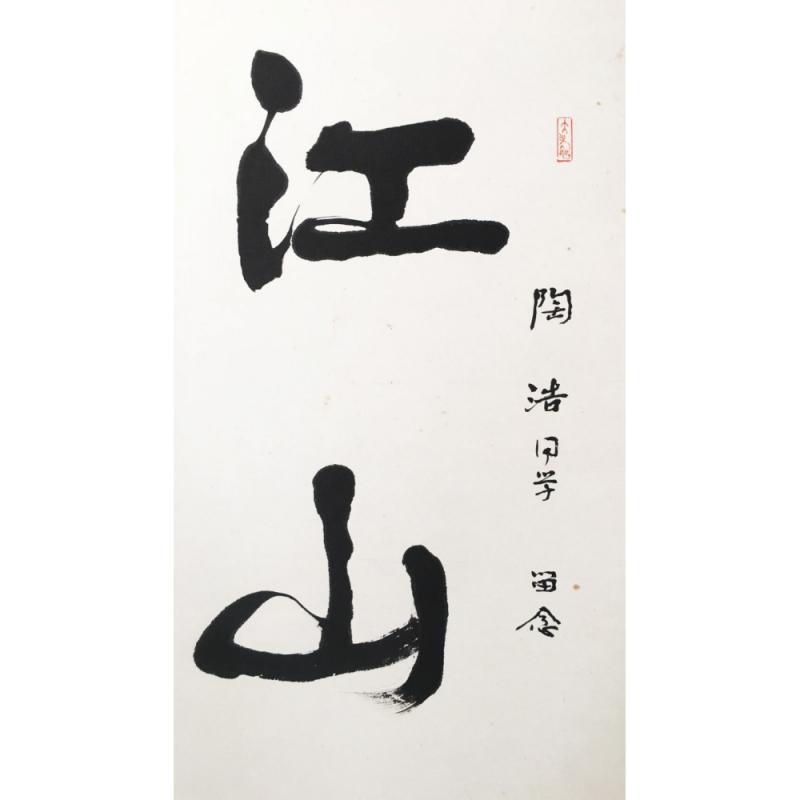 陶浩同学 留念
江山